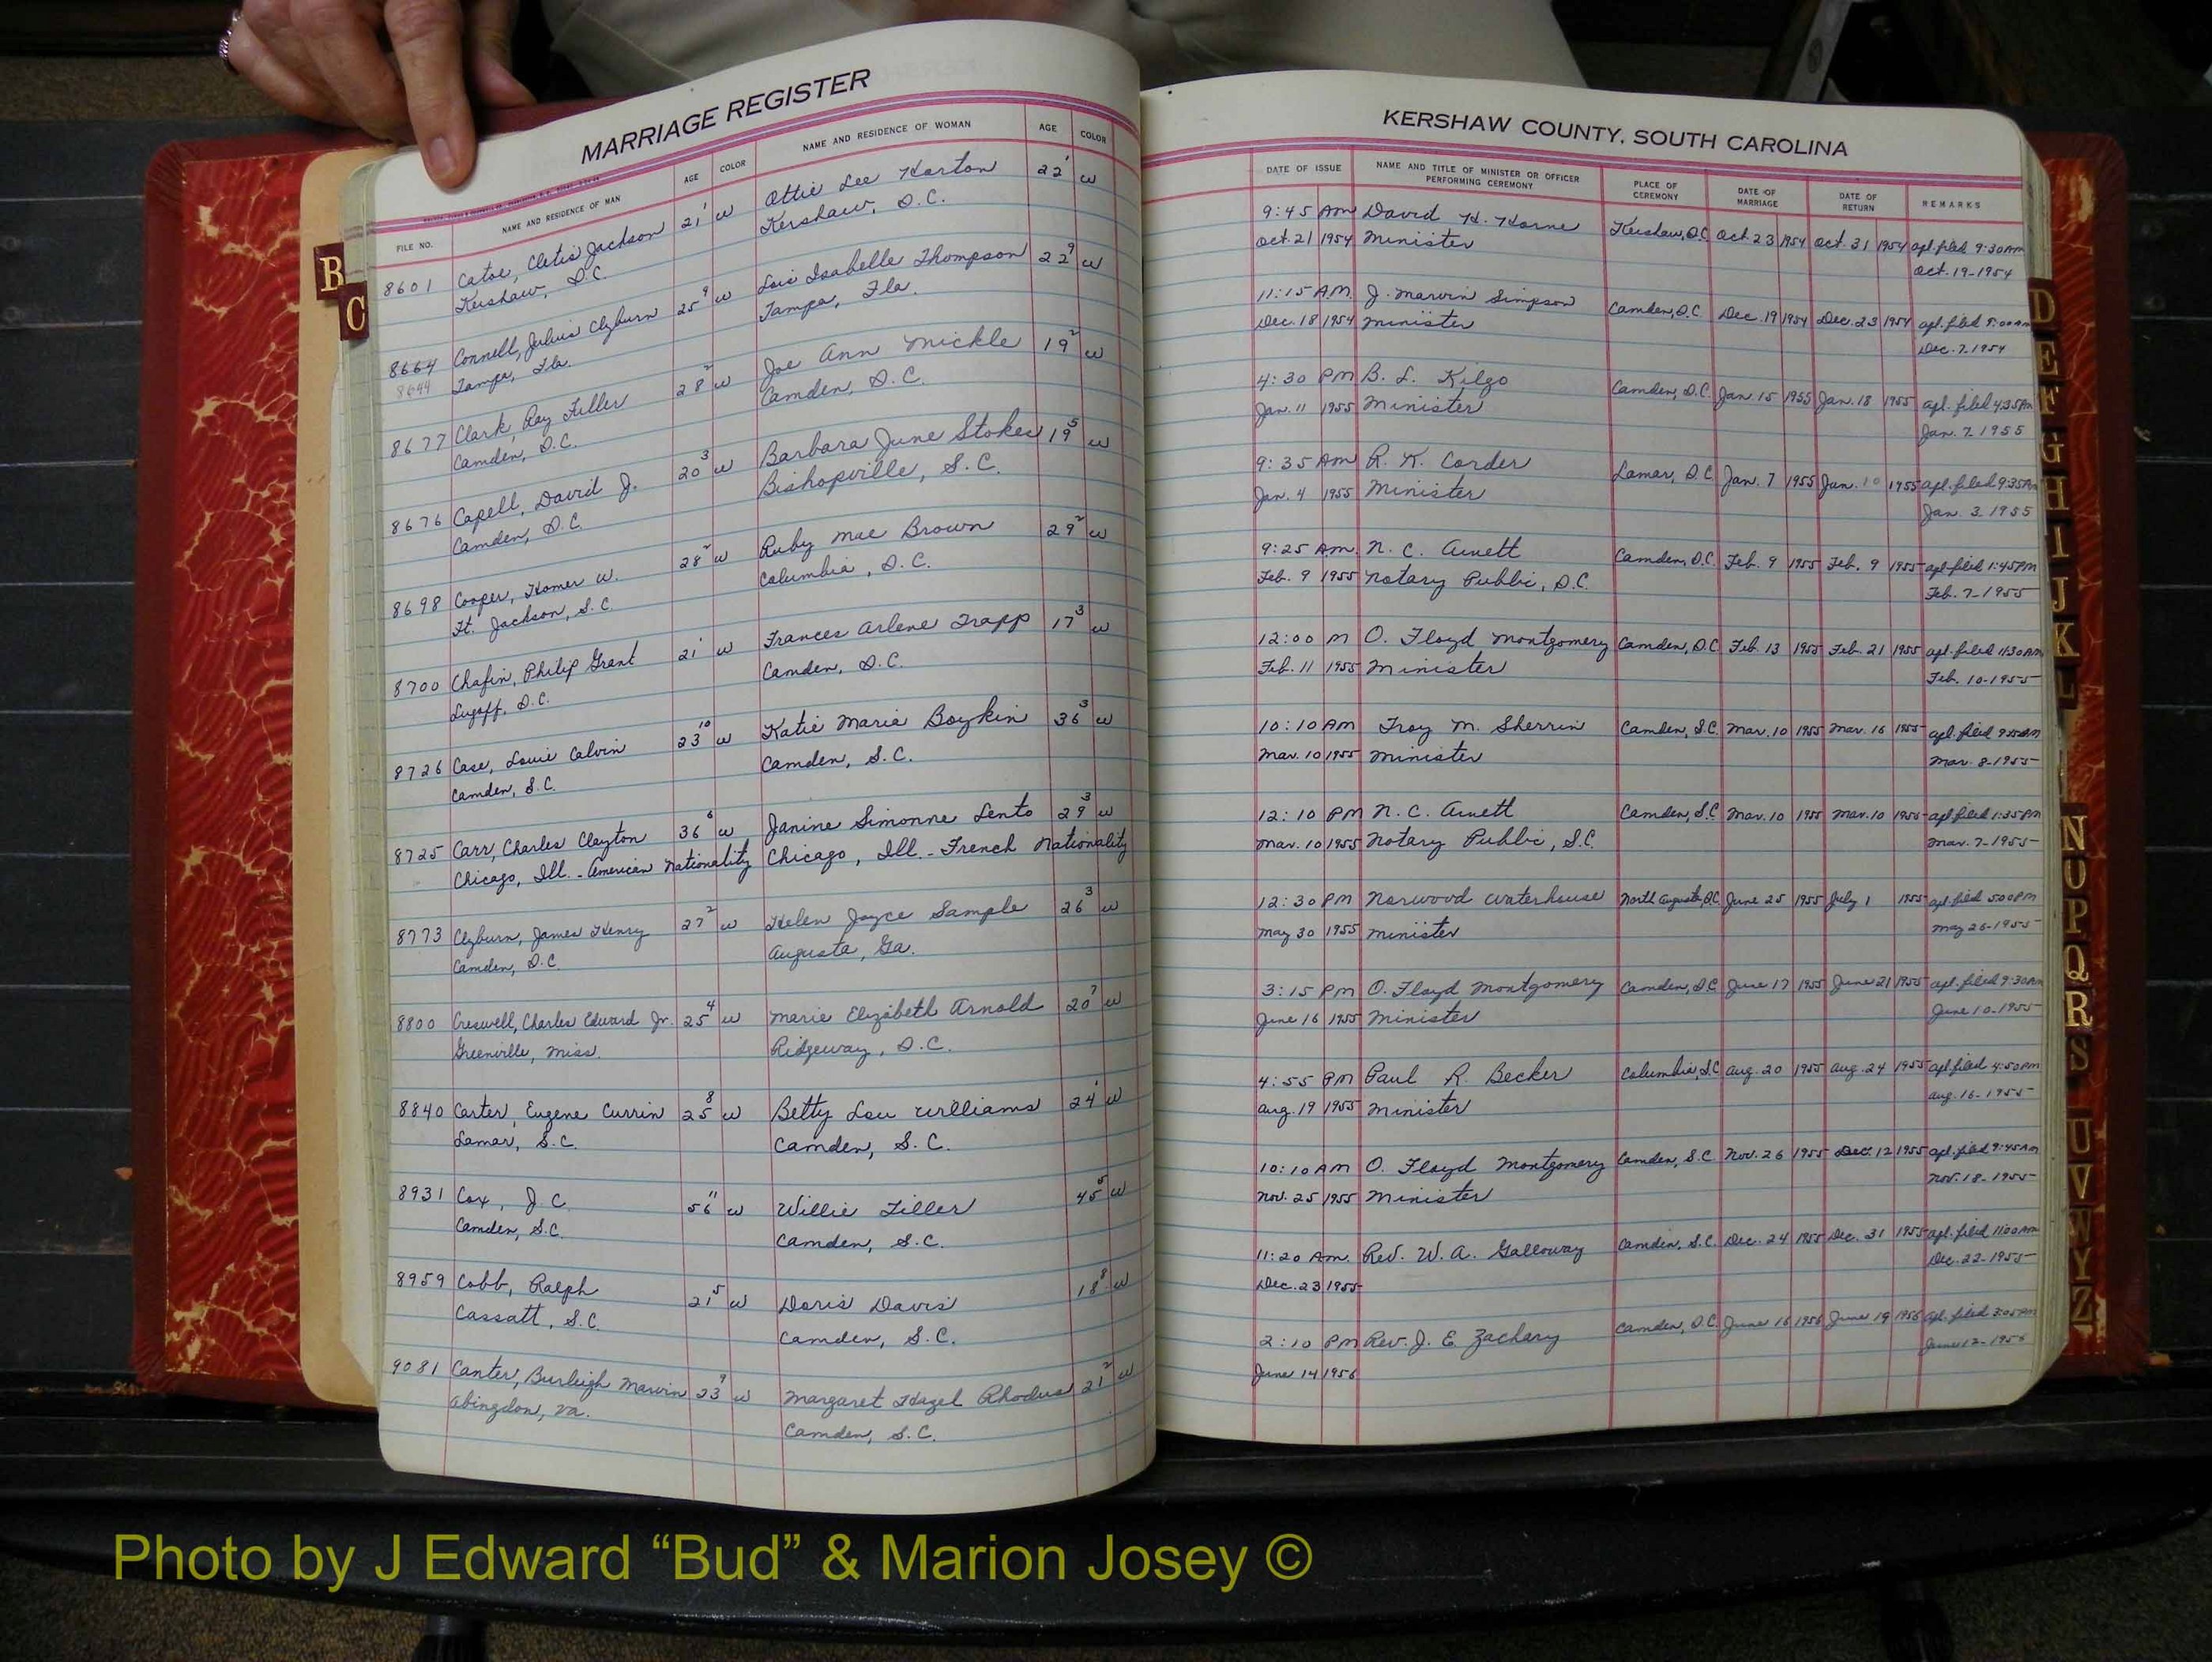 MARRIAGE REGISTER
FILE NO. NAME AND RESIDENCE OF MAN AGE COLOR NAME AND RESIDENCE OF WOMAN AGE COLOR
8601 Catoe, Cletis Jackson 21 1 W Ottie Lee Horton 22 1 W
Kershaw, S.C. Kershaw, S.C.
8664 Connell, Julius Clyburn 25 9 W Lois Isabelle Thompson 22 9 W
8644 Tampa, Fla. Tampa, Fla.
8677 Clark, Ray Tiller 28 2 W Joe Ann Mickle 19 2 W
Camden, S.C. Camden, S.C.
8676 Capell, David J. 20 3 W Barbara June Stokes 19 5 W
Camden, S.C. Bishopville, S.C.
8698 Cooper, Homer W. 28 2 W Ruby Mae Brown 29 2 W
Ft. Jackson, S.C. Columbia, S.C.
8700 Chafin, Philip Grant 21 1 W Frances Arlene Trapp 17 3 W
Lugoff, S.C. Camden, S.C.
8726 Case, Louie Calvin 23 10 W Katie Maria Boykin 36 3 W
Camden, S.C. Camden, S.C.
8725 Carr, Charles Clayton 36 6 W Janine Simonne Lento 29 3 W
Chicago, Ill. - American Nationality Chicago, Ill. - French Nationality
8773 Clyburn, James Henry 27 2 W Helen Joyce Sample 26 3 W
Camden, S.C. Augusta, Ga.
8800 Creswell, Charles Edward Jr. 25 4 W Marie Elizabeth Arnold 20 7 W
Greenville, Miss. Ridgeway, S.C.
8840 Carter, Eugene Currin 25 8 W Betty Lou Williams 24 1 W
Lamar, S.C. Camden, S.C.
8931 Cox, J C 56 11 W Willie Tiller 45 5 W
Camden, S.C. Camden, S.C.
8959 Cobb, Ralph 21 5 W Doris Davis 18 8 W
Cassatt, S.C. Camden, S.C.
9081 Canter, Burleigh Marvin 23 9 W Margaret Hazel Rhodus 21 2 W
Abingdon, Va. Camden, S.C.
KERSHAW COUNTY, SOUTH CAROLINA
DATE OF ISSUE NAME AND TITLE OF MINISTER OR OFFICER PERFORMING CEREMONY PLACE OF CEREMONY DATE OF MARRIAGE DATE OF RETURN REMARKS
9:45 AM David H. Horne Kershaw, S.C. Oct. 23 1954 Oct. 31 1954 apl. filed 9:30 AM
Oct. 21 1954 Minister Oct. 19-1954
11:15 A.M. J. Marvin Simpson Camden, S.C. Dec. 19 1954 Dec. 23 1954 apl. filed 9:00 AM
Dec. 18 1954 Minister Dec. 7-1954
4:30 PM B. L. Kilgo Camden, S.C. Jan. 15 1955 Jan. 18 1955 apl. filed 4:35 PM
Jan. 11 1955 Minister Jan. 7 1955
9:35 AM R. K. Corder Lamar, S.C. Jan. 7 1955 Jan. 10 1955 apl. filed 9:35 AM
Jan. 4 1955 Minister Jan. 3 1955
9:25 A.M. N. C. Arnett Camden, S.C. Feb. 9 1955 Feb. 9 1955 apl. filed 1:45 PM
Feb. 9 1955 Notary Public, S.C. Feb. 7-1955
12:00 M O. Floyd Montgomery Camden, S.C. Feb. 13 1955 Feb. 21 1955 apl. filed 11:30 AM
Feb. 11 1955 Minister Feb. 10-1955
10:10 AM Troy M. Sherrin Camden, S.C. Mar. 10 1955 Mar. 16 1955 apl. filed AM
Mar. 10 1955 Minister Mar. 8-1955
12:10 PM N. C. Arnett Camden, S.C. Mar. 10 1955 Mar. 10 1955 apl filed 1:35 PM
Mar. 10 1955 Notary Public, S.C. Mar. 7-1955
12:30 PM Norwood Waterhouse North Augusta, S.C. June 25 1955 July 1 1955 apl. filed 5:00 PM
May 30 1955 Minister May 26-1955
3:15 PM O. Floyd Montgomery Camden, S.C. June 17 1955 June 21 1955 apl. filed 9:30 AM
June 16 1955 Minister June 10-1955
4:55 PM Paul R. Becker Columbia, S.C. Aug. 20 1955 Aug. 24 1955 apl. filed 4:50 PM
Aug. 19 1955 Minister Aug. 16-1955
10:10 AM O. Floyd Montgomery Camden, S.C. Nov. 26 1955 Dec. 12 1955 apl. filed 9:45 AM
Nov. 25 1955 Minister Nov. 18-1955
11:20 A.M. Rev. W. A. Galloway Camden, S.C. Dec. 24 1955 Dec. 31 1955 apl. filed 11:00 AM
Dec. 23 1955 Dec. 22-1955
2:10 PM Rev. J. E. Zachary Camden, S.C. June 16 1956 June 19 1956 apl. filed 3:05 PM
June 14 1956 June 12-1956
B
C
D
E
F
G
H
I
J
K
L
N
O
P
Q
R
S
U
V
W
Y
Z
Photo by J Edward “Bud” & Marion Josey ©